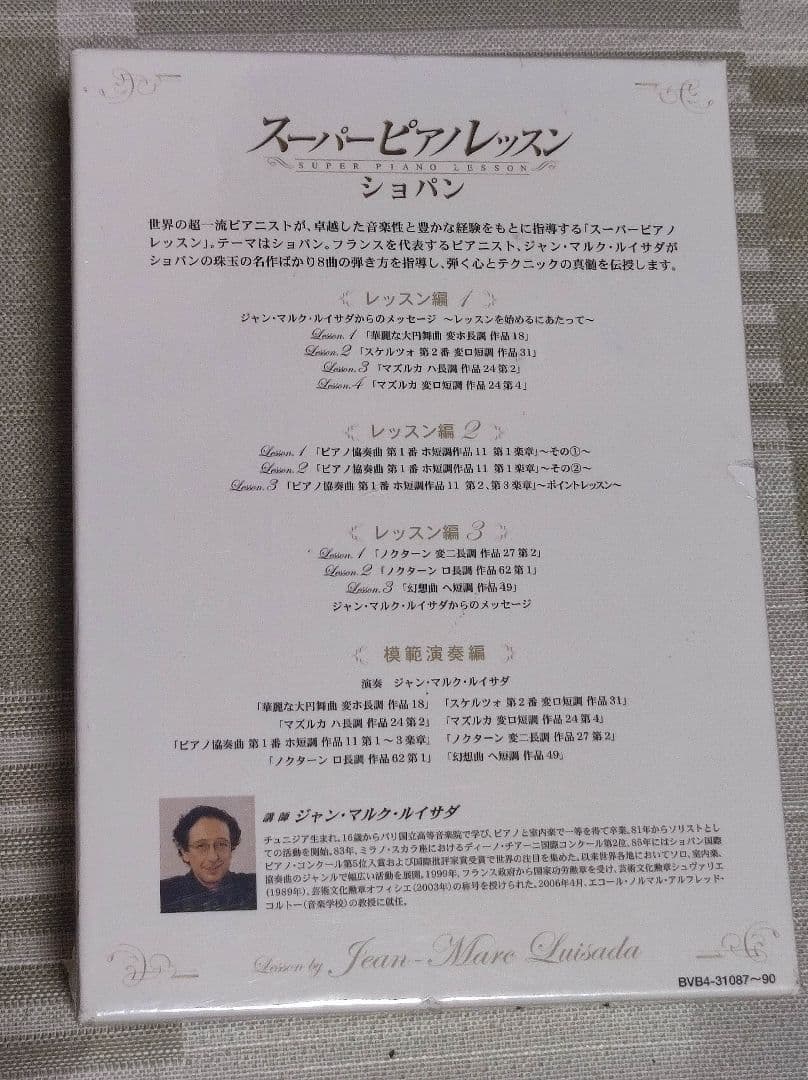 スーパーピアノレッスン
SUPER PIANO LESSON
ショパン
世界の超一流ピアニストが、卓越した音楽性と豊かな経験をもとに指導する「スーパーピアノ
レッスン」。テーマはショパン。フランスを代表するピアニスト、ジャン・マルク・ルイサダが
ショパンの珠玉の名作ばかり8曲の弾き方を指導し、弾く心とテクニックの真髄を伝授します。
レッスン編 1
ジャン・マルク・ルイサダからのメッセージ ～レッスンを始めるにあたって～
Lesson.1 「華麗な大円舞曲 変ホ長調 作品18」
Lesson.2 「スケルツォ 第2番 変ロ短調 作品31」
Lesson.3 「マズルカ ハ長調 作品24第2」
Lesson.4 「マズルカ 変ロ短調 作品24第4」
レッスン編 2
Lesson.1 「ピアノ協奏曲 第1番 ホ短調作品11 第1楽章」～その①～
Lesson.2 「ピアノ協奏曲 第1番 ホ短調作品11 第1楽章」～その②～
Lesson.3 「ピアノ協奏曲 第1番 ホ短調作品11 第2、第3楽章」～ポイントレッスン～
レッスン編 3
Lesson.1 「ノクターン 変ニ長調 作品27第2」
Lesson.2 「ノクターン ロ長調 作品62第1」
Lesson.3 「幻想曲 ヘ短調 作品49」
ジャン・マルク・ルイサダからのメッセージ
模範演奏編
演奏 ジャン・マルク・ルイサダ
「華麗な大円舞曲 変ホ長調 作品18」 「スケルツォ 第2番 変ロ短調 作品31」
「マズルカ ハ長調 作品24第2」 「マズルカ 変ロ短調 作品24第4」
「ピアノ協奏曲 第1番 ホ短調 作品11第1～3楽章」 「ノクターン 変ニ長調 作品27第2」
「ノクターン ロ長調 作品62第1」 「幻想曲 ヘ短調 作品49」
講師 ジャン・マルク・ルイサダ
チュニジア生まれ。16歳からパリ国立高等音楽院で学び、ピアノと室内楽で一等を得て卒業。81年からソリストとし
ての活動を開始。83年、ミラノ・スカラ座におけるディーノ・チアーニ国際コンクール第2位、85年にはショパン国際
ピアノ・コンクール第5位入賞および国際批評家賞受賞で世界の注目を集めた。以来世界各地においてソロ、室内楽、
協奏曲のジャンルで幅広い活動を展開。1999年、フランス政府から国家功労勲章を受け、芸術文化勲章シュヴァリエ
(1989年)、芸術文化勲章オフィシエ(2003年)の称号を授けられた。2006年4月、エコール・ノルマル・アルフレッド・
コルトー(音楽学校)の教授に就任。
Lesson by Jean-Marc Luisada
BVB4-31087～90